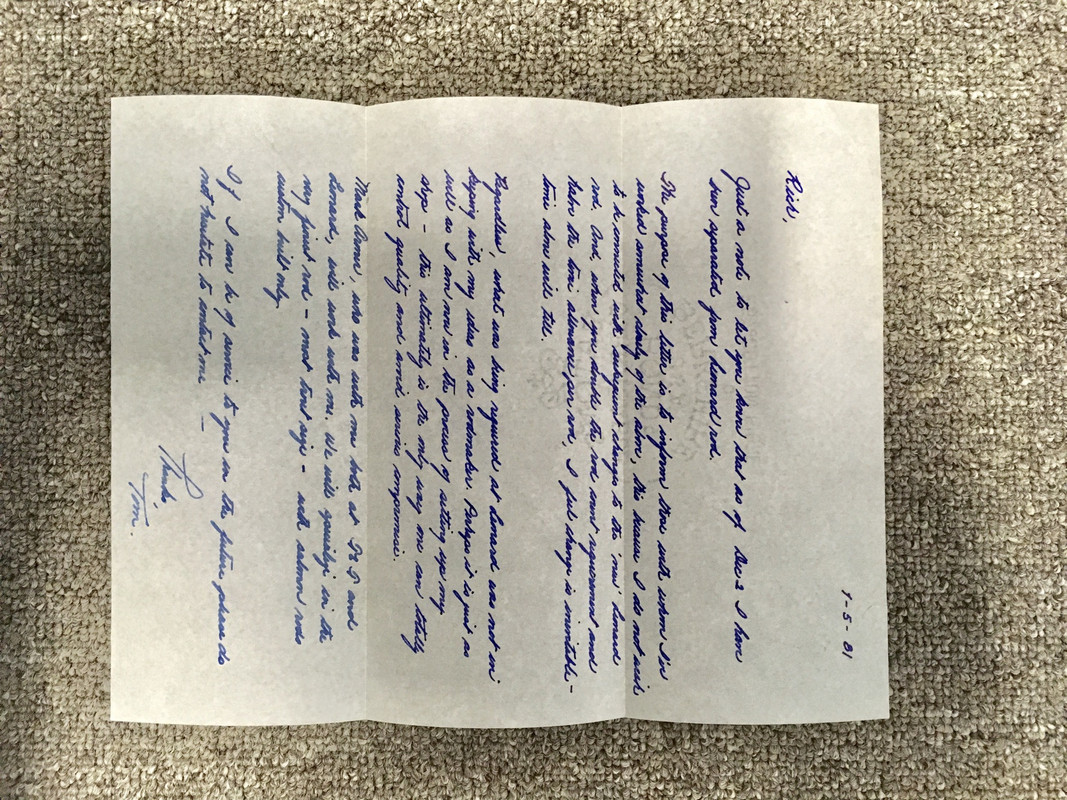 1-5-81
Rick,
Just a note to let you know that as of Dec 2 I have
been separated from Leonard rod.
The purpose of this letter is to inform those with whom I've
worked somewhat closely of the above, this because I do not wish
to be associated with subsequent changes to the 'new' Leonard
rod. And, when you double the rod count requirement and
halve the time allowance per rod, I feel change is inevitable -
time alone will tell.
Regardless, what was being required at Leonard was not in
keeping with my ideas as a rodmaker. Perhaps it is just as
well as I am now in the process of setting up my
shop - this ultimately is the only way one can totally
control quality and avoid unwise compromise.
Mark, who was with me both at P&S and
Leonard, will work with me. We will specialize in the
very finest rod - most trout size - with salmon rods
custom built only.
If I can be of service to you in the future please do
not hesitate to contact me -
Thanks
Tom.